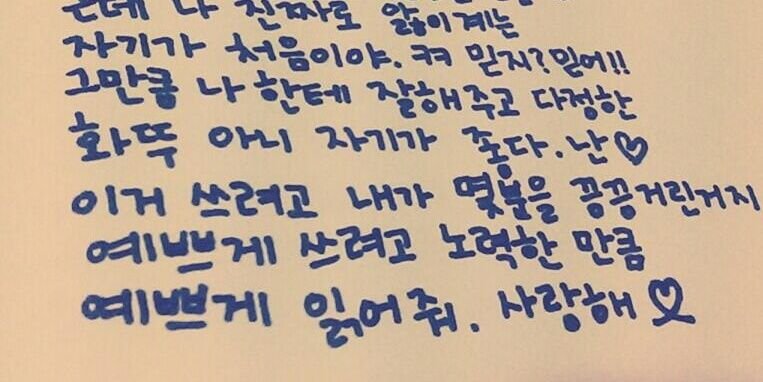 근데 나 진짜로 앓이계는
자기가 처음이야. ㅋㅋ 믿지? 믿어!!
그만큼 나 한테 잘해주고 다정한
화뚜 아니 자기가 좋다. 난♡
이거 쓰려고 내가 몇분을 끙끙거린거지
예쁘게 쓰려고 노력한 만큼
예쁘게 읽어줘. 사랑해♡